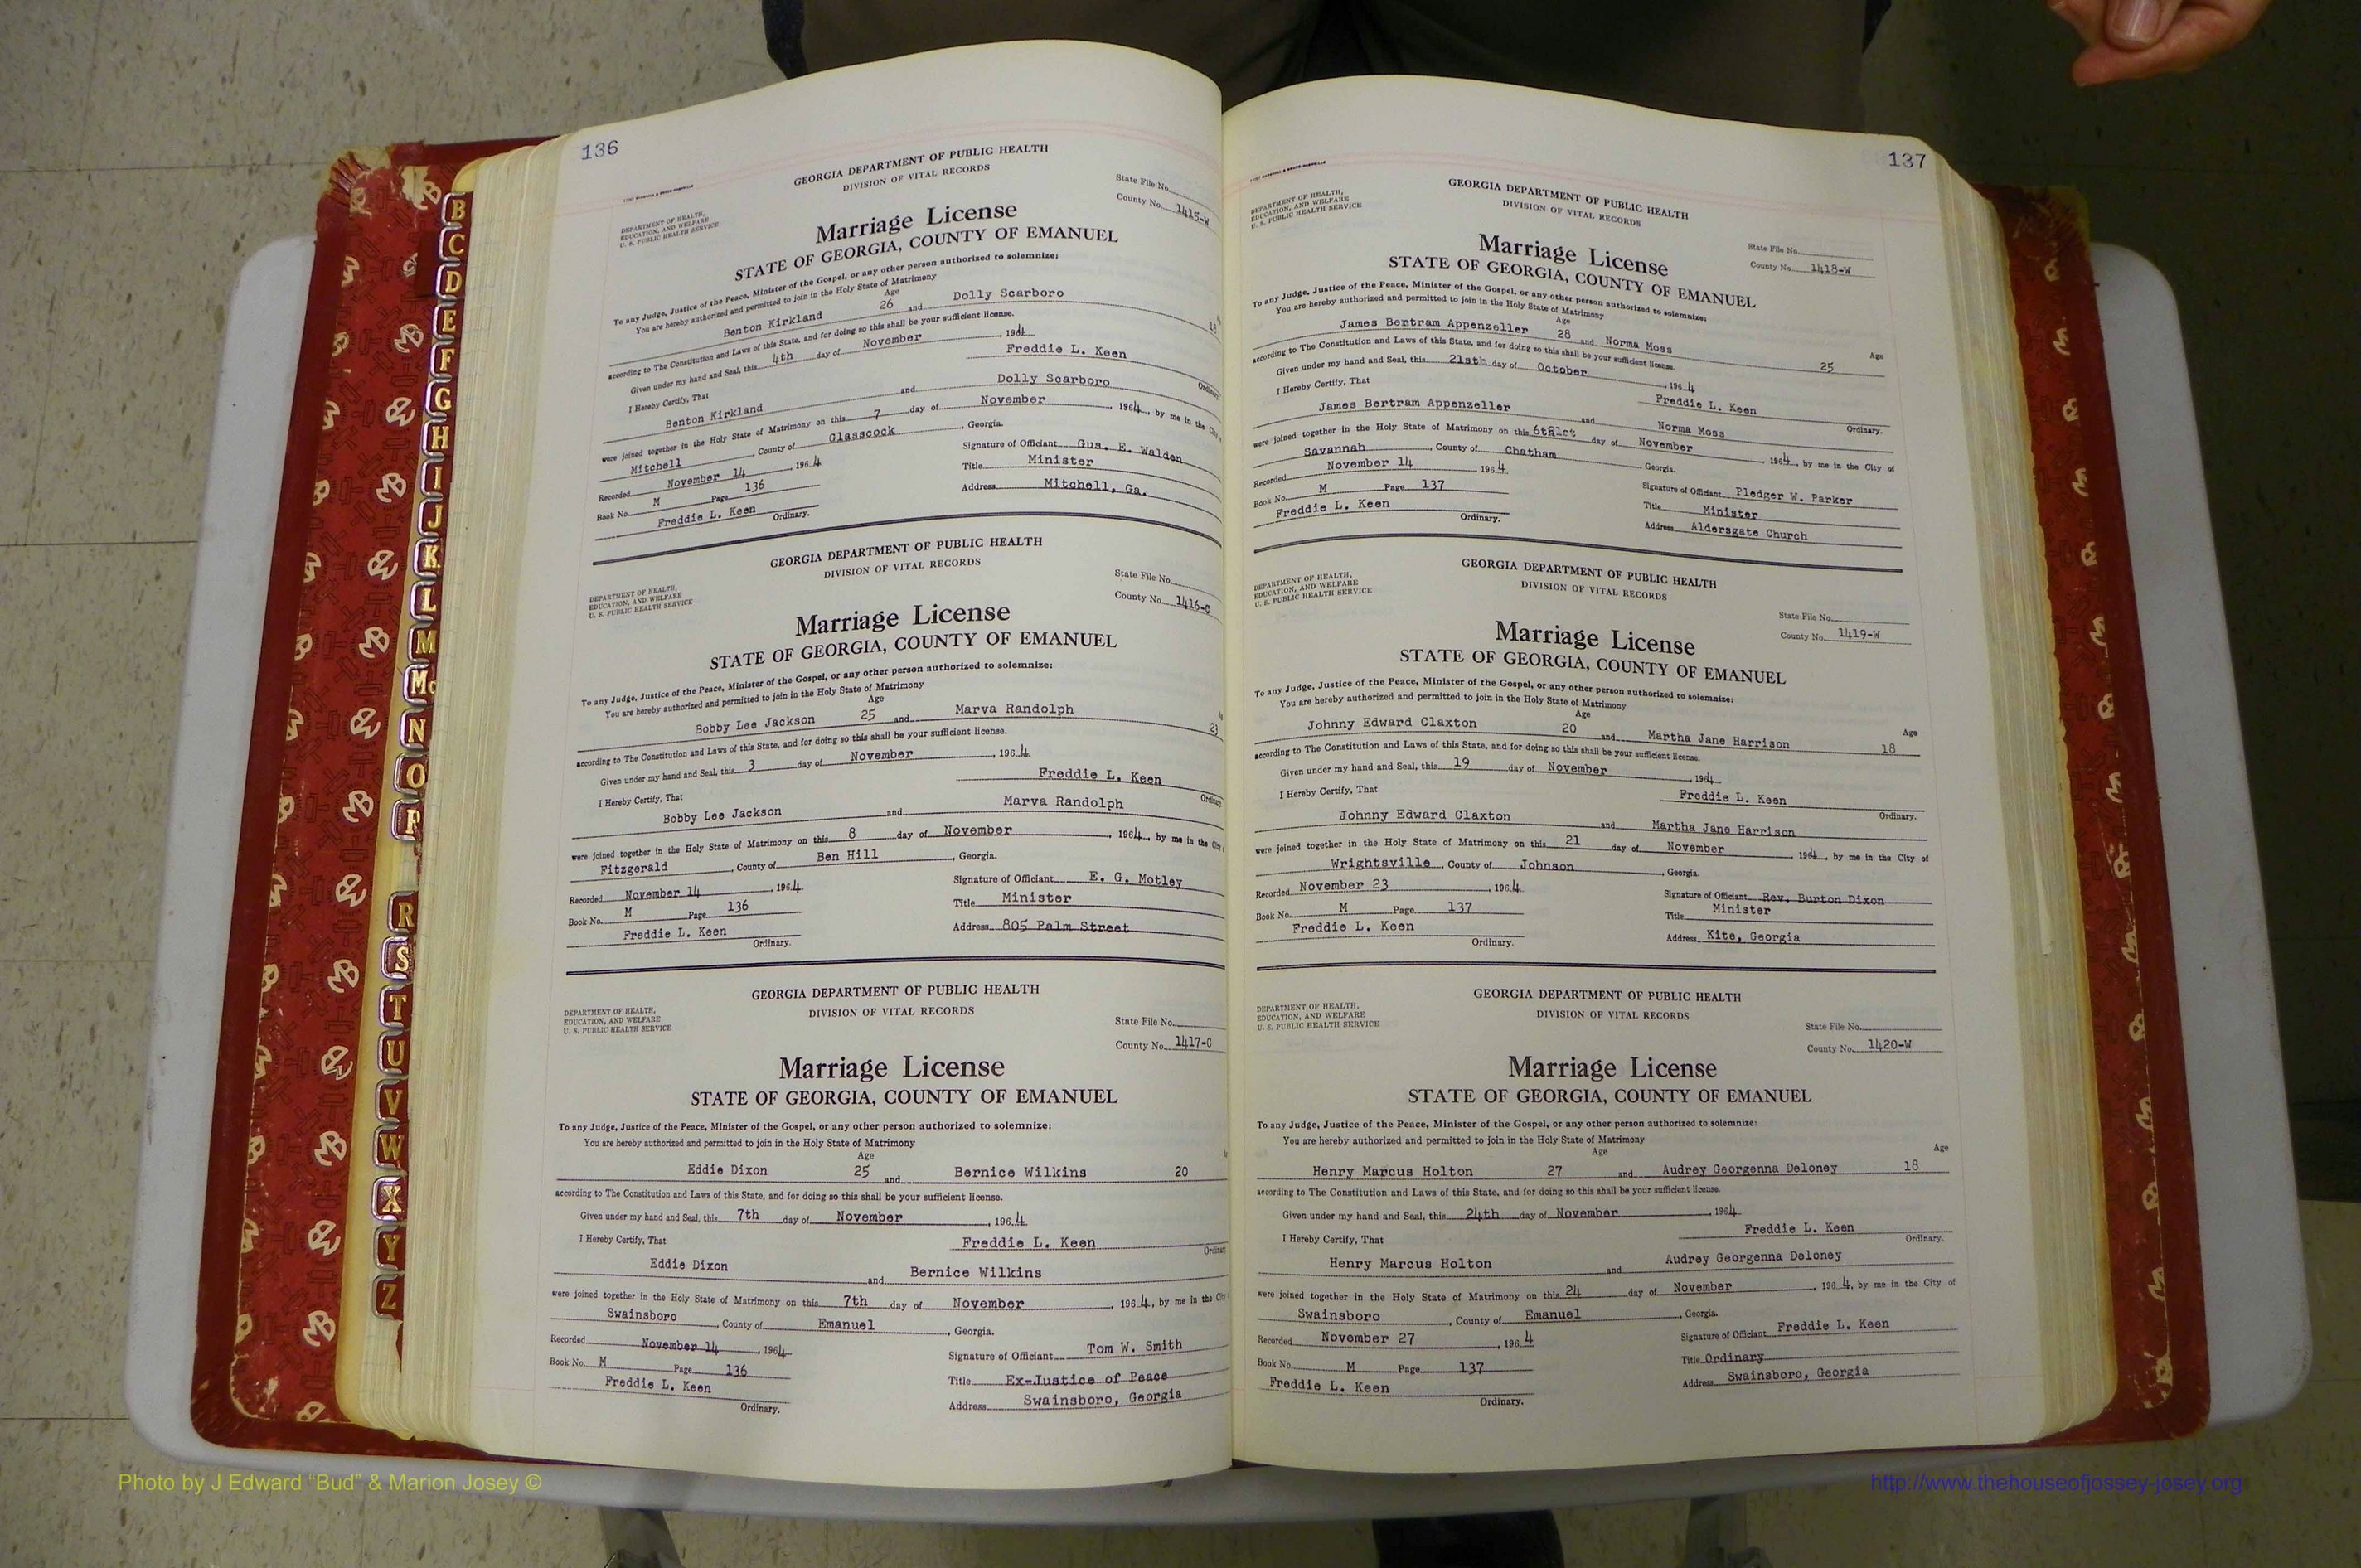 136
GEORGIA DEPARTMENT OF PUBLIC HEALTH
DIVISION OF VITAL RECORDS
DEPARTMENT OF HEALTH,
EDUCATION, AND WELFARE
U. S. PUBLIC HEALTH SERVICE
State File No.
County No. 1415-W
Marriage License
STATE OF GEORGIA, COUNTY OF EMANUEL
To any Judge, Justice of the Peace, Minister of the Gospel, or any other person authorized to solemnize:
You are hereby authorized and permitted to join in the Holy State of Matrimony
Age
Benton Kirkland 26 and Dolly Scarboro 18
according to The Constitution and Laws of this State, and for doing so this shall be your sufficient license.
Given under my hand and Seal, this 4th day of November, 1964
Freddie L. Keen
I Hereby Certify, That Ordinary
Benton Kirkland and Dolly Scarboro
were joined together in the Holy State of Matrimony on this 7 day of November, 1964, by me in the City
Mitchell, County of Glasscock, Georgia.
Recorded November 14, 1964 Signature of Officiant Gus. E. Walden
Book No. M Page 136 Title Minister
Freddie L. Keen Address Mitchell, Ga.
Ordinary.
GEORGIA DEPARTMENT OF PUBLIC HEALTH
DIVISION OF VITAL RECORDS
DEPARTMENT OF HEALTH,
EDUCATION, AND WELFARE
U. S. PUBLIC HEALTH SERVICE
State File No.
County No. 1416-C
Marriage License
STATE OF GEORGIA, COUNTY OF EMANUEL
To any Judge, Justice of the Peace, Minister of the Gospel, or any other person authorized to solemnize:
You are hereby authorized and permitted to join in the Holy State of Matrimony
Age
Bobby Lee Jackson 25 and Marva Randolph
according to The Constitution and Laws of this State, and for doing so this shall be your sufficient license.
Given under my hand and Seal, this 3 day of November, 1964
Freddie L. Keen
I Hereby Certify, That Ordinary
Bobby Lee Jackson and Marva Randolph
were joined together in the Holy State of Matrimony on this 8 day of November, 1964, by me in the City
Fitzgerald, County of Ben Hill, Georgia.
Recorded November 14, 1964 Signature of Officiant E. G. Motley
Book No. M Page 136 Title Minister
Freddie L. Keen Address 805 Palm Street
Ordinary.
GEORGIA DEPARTMENT OF PUBLIC HEALTH
DIVISION OF VITAL RECORDS
DEPARTMENT OF HEALTH,
EDUCATION, AND WELFARE
U. S. PUBLIC HEALTH SERVICE
State File No.
County No. 1417-C
Marriage License
STATE OF GEORGIA, COUNTY OF EMANUEL
To any Judge, Justice of the Peace, Minister of the Gospel, or any other person authorized to solemnize:
You are hereby authorized and permitted to join in the Holy State of Matrimony
Age
Eddie Dixon 25 and Bernice Wilkins 20
according to The Constitution and Laws of this State, and for doing so this shall be your sufficient license.
Given under my hand and Seal, this 7th day of November, 1964
I Hereby Certify, That Freddie L. Keen
Ordinar
Eddie Dixon and Bernice Wilkins
were joined together in the Holy State of Matrimony on this 7th day of November, 1964, by me in the City
Swainsboro, County of Emanuel, Georgia.
Recorded November 14, 1964 Signature of Officiant Tom W. Smith
Book No. M Page 136 Title Ex-Justice of Peace
Freddie L. Keen Address Swainsboro, Georgia
Ordinary.
137
GEORGIA DEPARTMENT OF PUBLIC HEALTH
DIVISION OF VITAL RECORDS
DEPARTMENT OF HEALTH,
EDUCATION, AND WELFARE
U. S. PUBLIC HEALTH SERVICE
State File No.
County No. 1418-W
Marriage License
STATE OF GEORGIA, COUNTY OF EMANUEL
To any Judge, Justice of the Peace, Minister of the Gospel, or any other person authorized to solemnize:
You are hereby authorized and permitted to join in the Holy State of Matrimony
Age Age
James Bertram Appenzeller 28 and Norma Moss 25
according to The Constitution and Laws of this State, and for doing so this shall be your sufficient license.
Given under my hand and Seal, this 21st day of October, 1964
I Hereby Certify, That Freddie L. Keen
Ordinary.
James Bertram Appenzeller and Norma Moss
were joined together in the Holy State of Matrimony on this day of November 1964, by me in the City of
Savannah, County of Chatham, Georgia.
Recorded November 14, 1964 Signature of Officiant Pledger W. Parker
Book No. M Page 137 Title Minister
Freddie L. Keen Address Aldersgate Church
Ordinary.
GEORGIA DEPARTMENT OF PUBLIC HEALTH
DIVISION OF VITAL RECORDS
DEPARTMENT OF HEALTH,
EDUCATION, AND WELFARE
U. S. PUBLIC HEALTH SERVICE
State File No.
County No. 1419-W
Marriage License
STATE OF GEORGIA, COUNTY OF EMANUEL
To any Judge, Justice of the Peace, Minister of the Gospel, or any other person authorized to solemnize:
You are hereby authorized and permitted to join in the Holy State of Matrimony
Age Age
Johnny Edward Claxton 20 and Martha Jane Harrison 18
according to The Constitution and Laws of this State, and for doing so this shall be your sufficient license.
Given under my hand and Seal, this 19 day of November, 1964
I Hereby Certify, That Freddie L. Keen
Ordinary.
Johnny Edward Claxton and Martha Jane Harrison
were joined together in the Holy State of Matrimony on this 21 day of November, 1964, by me in the City of
Wrightsville, County of Johnson, Georgia.
Recorded November 23, 1964 Signature of Officiant Rev. Burton Dixon
Book No. M Page 137 Title Minister
Freddie L. Keen Address Kite, Georgia
Ordinary.
GEORGIA DEPARTMENT OF PUBLIC HEALTH
DIVISION OF VITAL RECORDS
DEPARTMENT OF HEALTH,
EDUCATION, AND WELFARE
U. S. PUBLIC HEALTH SERVICE
State File No.
County No. 1420-W
Marriage License
STATE OF GEORGIA, COUNTY OF EMANUEL
To any Judge, Justice of the Peace, Minister of the Gospel, or any other person authorized to solemnize:
You are hereby authorized and permitted to join in the Holy State of Matrimony
Age Age
Henry Marcus Holton 27 and Audrey Georgenna Deloney 18
according to The Constitution and Laws of this State, and for doing so this shall be your sufficient license.
Given under my hand and Seal, this 24th day of November, 1964
I Hereby Certify, That Freddie L. Keen
Ordinary.
Henry Marcus Holton and Audrey Georgenna Deloney
were joined together in the Holy State of Matrimony on this 24 day of November, 1964, by me in the City of
Swainsboro, County of Emanuel, Georgia.
Recorded November 27, 1964 Signature of Officiant Freddie L. Keen
Book No. M Page 137 Title Ordinary
Freddie L. Keen Address Swainsboro, Georgia
Ordinary.
B
C
D
E
F
G
H
I
J
K
L
M
Mc
N
O
P
R
S
T
U
V
W
X
Y
Z
Photo by J Edward “Bud” & Marion Josey ©
http://www.thehouseofjossey-josey.org